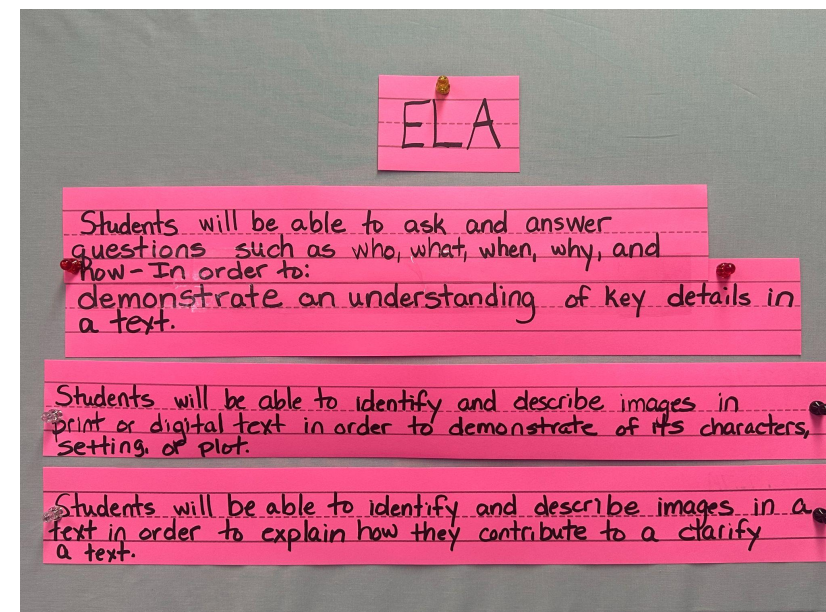 ELA
Students will be able to ask and answer
questions such as who, what, when, why, and
how - In order to:
demonstrate an understanding of key details in
a text.
Students will be able to identify and describe images in
print or digital text in order to demonstrate of its characters,
setting, or plot.
Students will be able to identify and describe images in a
text in order to explain how they contribute to a clarify
a text.